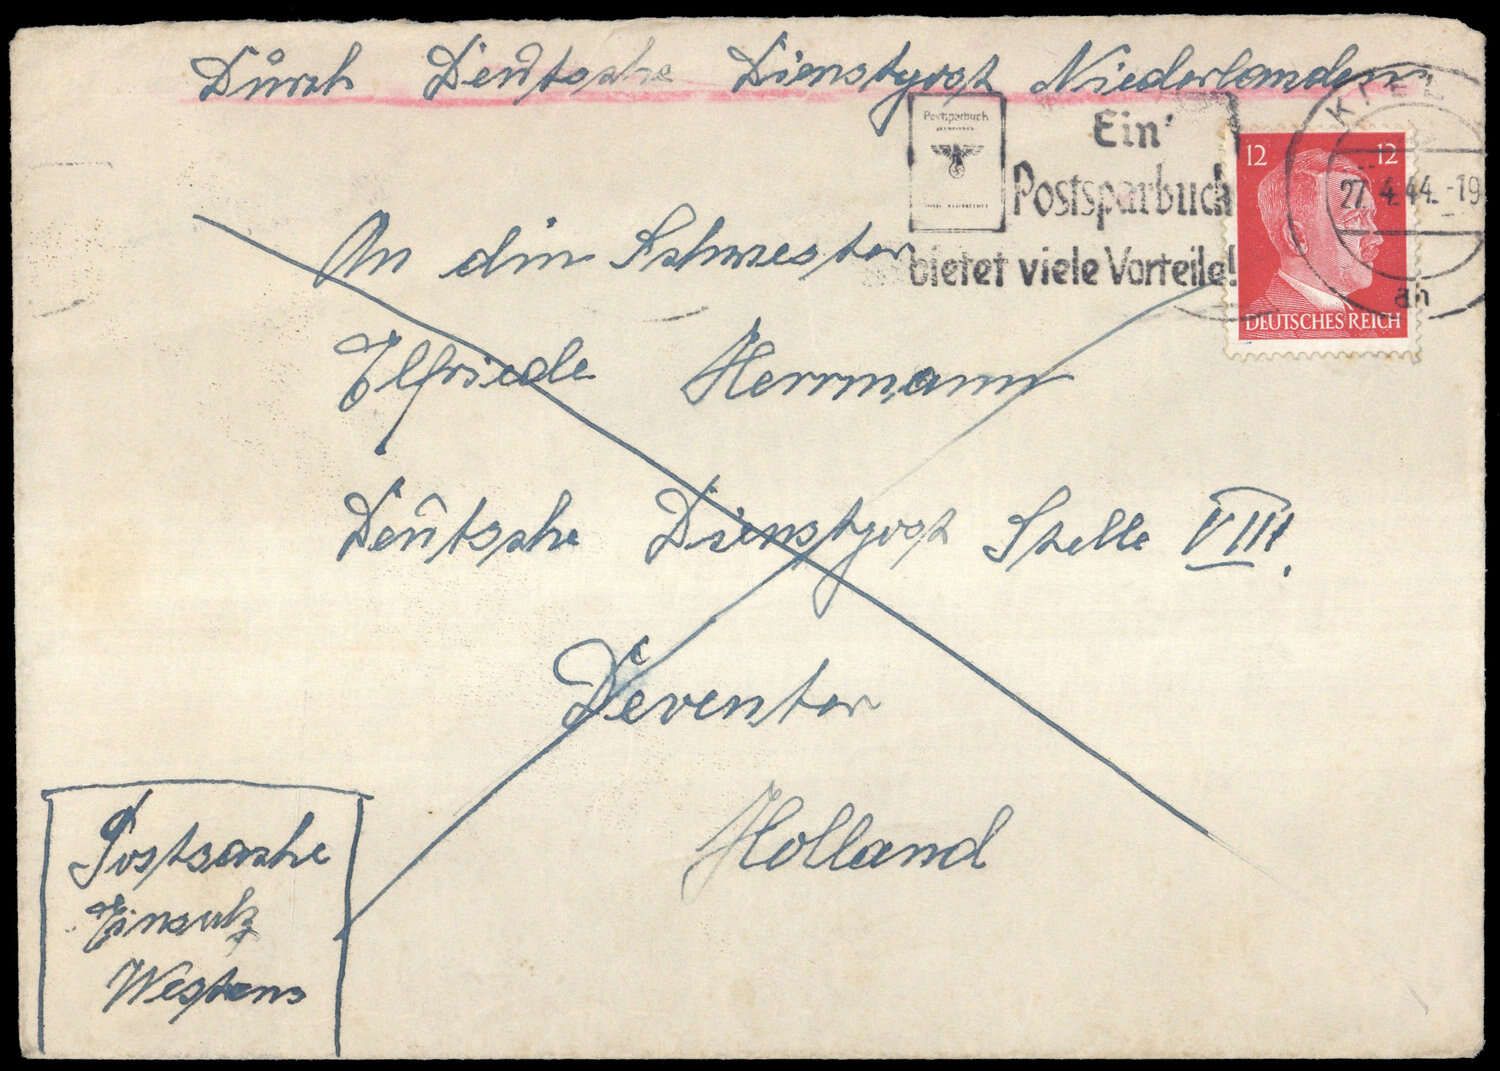 Durch Deutsche Dienstpost Niederlanden
Postsparbuch
Ein
Postsparbuch
bietet viele Vorteile!
KIEL
27.4.44.-19
12 12
DEUTSCHES REICH
An die Schwester
Elfriede Herrmann
Deutsche Dienstpost Stelle VIII.
Deventer
Holland
Postsache
Einsatz
Westens